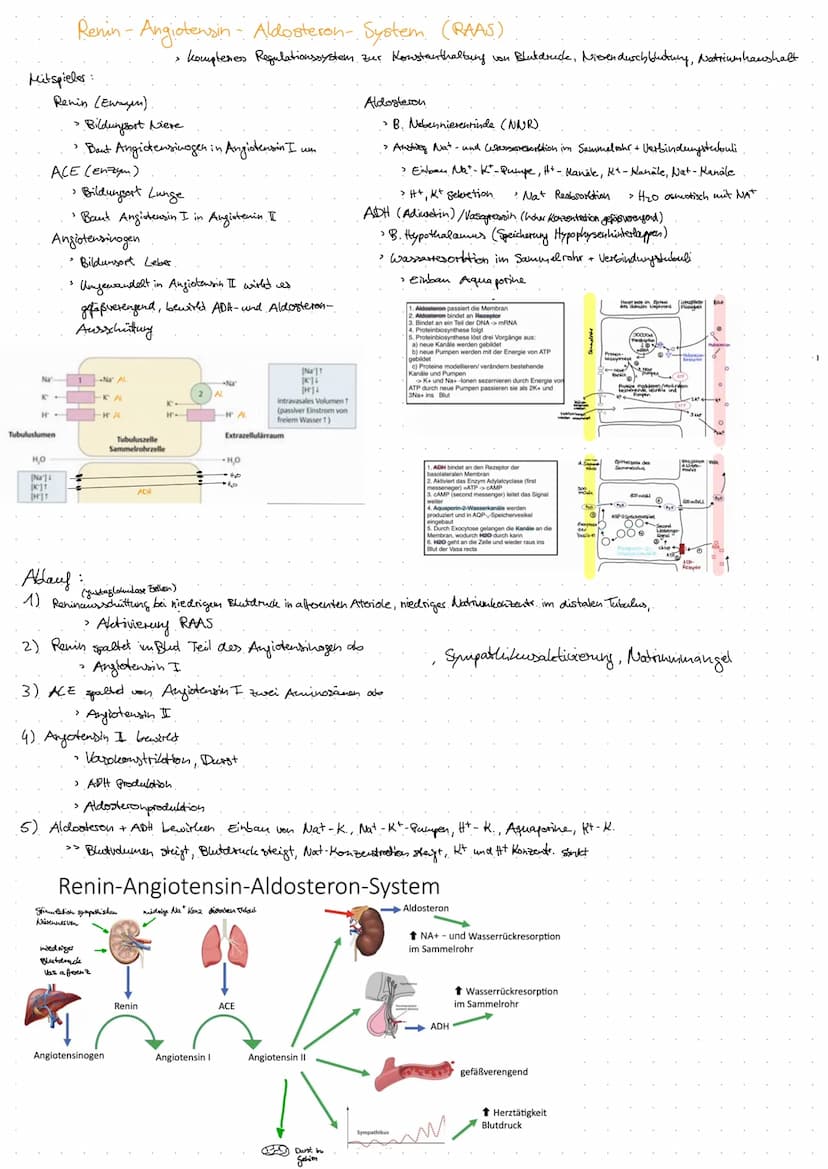 Renin - Angiotensin - Aldosteron - System (RAAS)
> komplexes Regulationssystem zur Konstanthaltung von Blutdruck, Nierendurchblutung, Natriumhaushalt
Mitspieler :
Renin (Enzym)
> Bildungsort Niere
> Baut Angiotensinogen in Angiotensin I um
ACE (Enzym)
> Bildungsort Lunge
> Baut Angiotensin I in Angiotensin II
Angiotensinogen
> Bildungsort Leber
> Umgewandelt in Angiotensin II wirkt es
gefäßverengend, bewirkt ADH- und Aldosteron-
Ausschüttung
Aldosteron
> B. Nebennierenrinde (NNR)
> Anstieg Na+- und Wasserresorption im Sammelrohr + Verbindungstubuli
> Einbau Na+-K+-Pumpe, H+-Kanäle, K+-Kanäle, Na+-Kanäle
> H+, K+ Sekretion > Na+ Reabsorbtion > H2O osmotisch mit NA+
ADH (Adiuretin) / Vasopressin (hoher Konzentration gefäßverengend)
> B. Hypothalamus (Speicherung Hypophysenhinterlappen)
> Wasserresorbtion im Sammelrohr + Verbindungstubuli
> Einbau Aquaporine
1. Aldosteron passiert die Membran
2. Aldosteron bindet an Rezeptor
3. Bindet an ein Teil der DNA -> mRNA
4. Proteinbiosynthese folgt
5. Proteinbiosynthese löst drei Vorgänge aus:
a) neue Kanäle werden gebildet
b) neue Pumpen werden mit der Energie von ATP
gebildet
c) Proteine modellieren/ verändern bestehende
Kanäle und Pumpen
-> K+ und Na+ -Ionen sezernieren durch Energie von
ATP durch neue Pumpen passieren sie als 2K+ und
3Na+ ins Blut
Na+ 1 Na+ Al.
K+ K+ Al
H+ H+ Al
2 Al.
Na+
K+
H+ H+ Al
[Na+]↑
[K+]↓
[H+]↓
intravasales Volumen ↑
(passiver Einstrom von
freiem Wasser ↑)
Tubuluslumen
Tubuluszelle
Sammelrohrzelle
Extrazellulärraum
H2O
H2O
H2O
H2O
[Na+]↓
[K+]↑
[H+]↑
ADH
1. ADH bindet an den Rezeptor der
basolateralen Membran
2. Aktiviert das Enzym Adylatcyclase (first
messeneger) =ATP -> cAMP
3. cAMP (second messenger) leitet das Signal
weiter
4. Aquasporin-2-Wasserkanäle werden
produziert und in AQP-,-Speichervesikel
eingebaut
5. Durch Exocytose gelangen die Kanäle an die
Membran, wodurch H2O durch kann
6. H2O geht an die Zelle und wieder raus ins
Blut der Vasa recta
Ablauf :
(juxtaglomuläre Zellen)
1) Reninausschüttung bei niedrigem Blutdruck in afferenten Arteriole, niedriges Natriumkonzentr. im distalen Tubulus,
> Aktivierung RAAS
, Sympathikusaktivierung, Natriummangel
2) Renin spaltet im Blut Teil des Angiotensinogen ab
> Angiotensin I
3) ACE spaltet von Angiotensin I zwei Aminosäuren ab
> Angiotensin II
4) Angiotensin II bewirkt
> Vasokonstriktion, Durst
> ADH Produktion
> Aldosteronproduktion
5) Aldosteron + ADH bewirken Einbau von Na+-K., Na+-K+-Pumpen, H+-K., Aquaporine, K+-K.
>> Blutvolumen steigt, Blutdruck steigt, Na+-Konzentration steigt, K+ und H+ Konzentr. sinkt
Renin-Angiotensin-Aldosteron-System
niedrige Na+ Konz distalen Tubuli
niedriger
Blutdruck
Vas afferenz
Renin
ACE
Angiotensinogen
Angiotensin I
Angiotensin II
Aldosteron
⬆ NA+ - und Wasserrückresorption
im Sammelrohr
⬆ Wasserrückresorption
im Sammelrohr
ADH
gefäßverengend
Sympathikus
⬆ Herztätigkeit
Blutdruck
Durst im
Gehirn